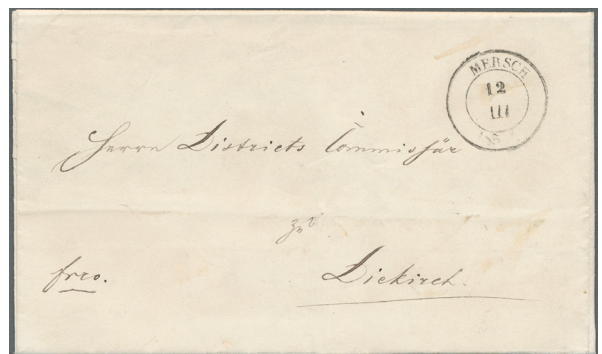 MERSCH
12
III
Herrn Districts Commissär
zu
Diekirch.
frco.